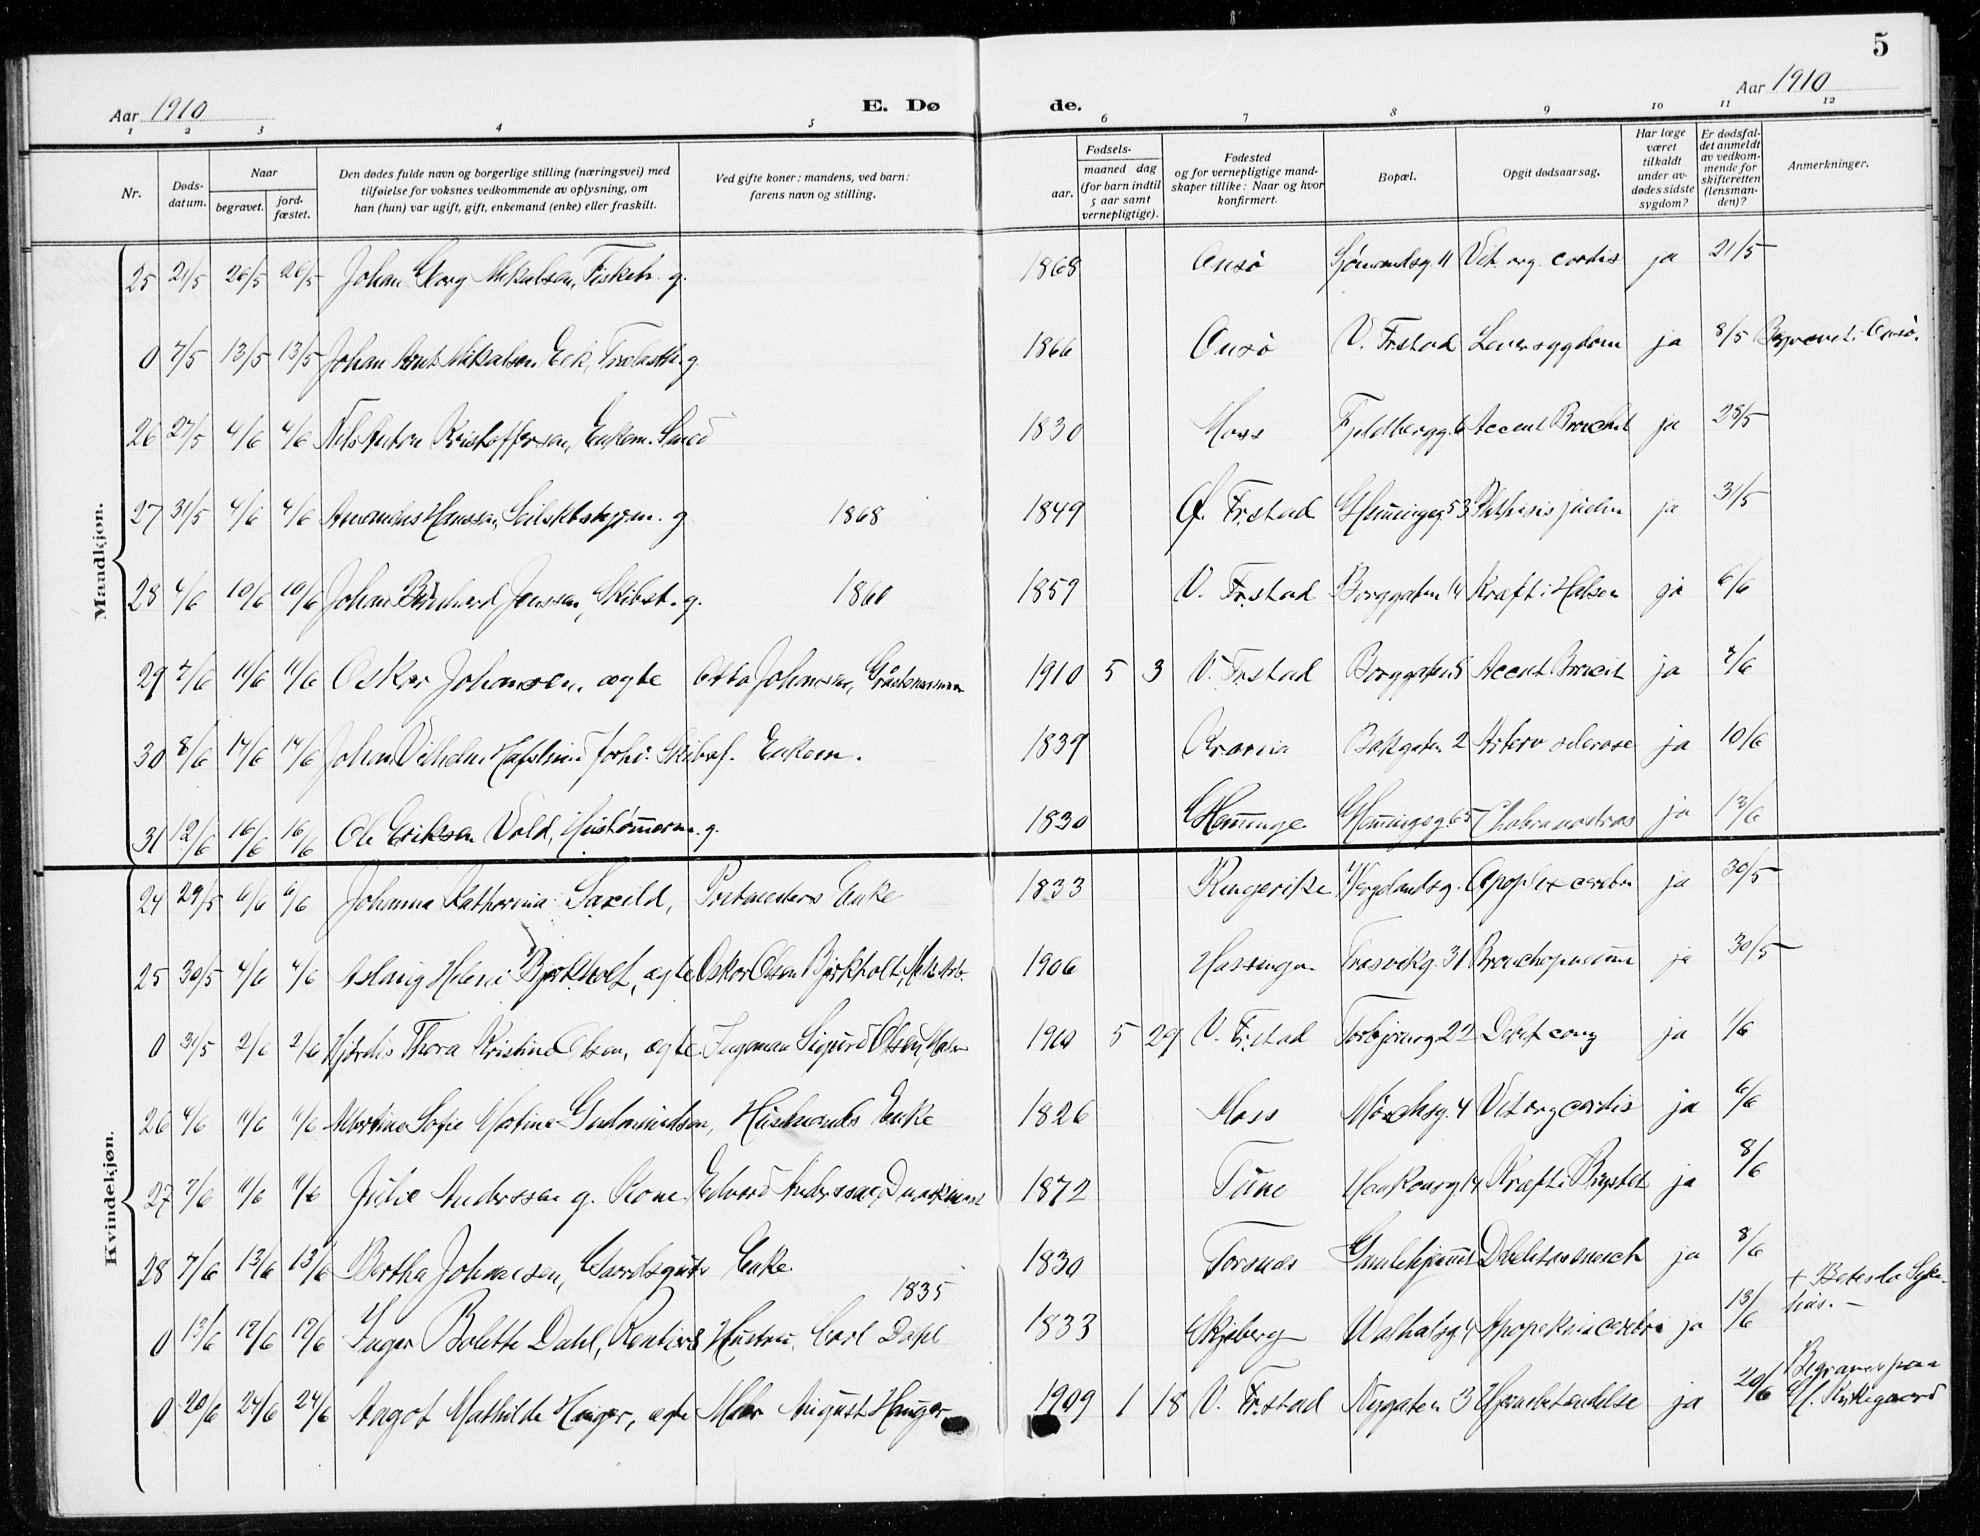 5
Aar 1910 E. Dø de. Aar 1910
1 2 3 4 5 6 7 8 9 10 11 12
Nr. Døds-datum. Naar begravet. jord-fæstet. Den dødes fulde navn og borgerlige stilling (næringsvei) med tilføielse for voksnes vedkommende av oplysning, om han (hun) var ugift, gift, enkemand (enke) eller fraskilt. Ved gifte koner: mandens, ved barn: farens navn og stilling. Fødsels- aar. maaned dag (for barn indtil 5 aar samt vernepligtige). Fødested og for vernepligtige mand-skaper tillike: Naar og hvor konfirmert. Bopæl. Opgit dødsaarsag. Har læge været tilkaldt under av-dødes sidste sygdom? Er dødsfal-det anmeldt av vedkom-mende for skifteretten (lensman-den)? Anmerkninger.
Mandkjøn.
25 21/5 26/5 26/5 Johan Georg Mikalsen, Fiskeh. g. 1868 Onsø 11 Vit. org. cordis ja 21/5
0 7/5 13/5 13/5 Johan Mikalsen g. 1866 Onsø V. Frstad Leversygdom ja 8/5 Begravet i Onsø.
26 27/5 4/6 4/6 Nils Anton Kristoffersen, Enkem. Smed 1830 Moss Fjeldbergg. 6 Accut Bronchit ja 28/5
27 31/5 4/6 4/6 Amandus Hansen, g. 1868 1849 G. Frstad Glemmingeg. 53 Phthisis ja 31/5
28 4/6 10/6 10/6 Johan Bernhard Jensen, Skibst. g. 1860 1859 V. Frstad Borggaten 14 Kræft i Halsen ja 6/6
29 7/6 11/6 11/6 Oskar Johansen, ægte Otto Johansen, 1910 5 3 V. Frstad Borggaten 5 Accut Broncit ja 7/6
30 8/6 14/6 14/6 Johan Vilhelm Hafslund Skibsf. Enkem. 1839 Bakgaten 2 Arterio sclerose ja 10/6
31 12/6 16/6 16/6 Ole Eriksen Vold, Hustømmerm. g. 1830 Glemminge Glemmingeg. 65 Cholera nostras ja 13/6
Kvindekjøn.
24 29/5 6/6 6/6 Johanna Katharina Saxild, Postmesters Enke 1833 Ringerike Apoplex cerebri ja 30/5
25 30/5 4/6 4/6 Aslaug Helene Bjørkholt, ægte Oskar Olsen Bjørkholt, 1906 Trosvikg. 31 Bronchopneum ja 30/5
0 31/5 2/6 2/6 Hjørdis Thora Kristine Olsen, ægte Ingeman Sigurd Olsen, 1910 5 29 V. Frstad Torbjørnsg 22 Debil cong ja 1/6
26 4/6 11/6 11/6 Martine Sofie Martine Gudmundsen, Husmands Enke 1826 Moss 4 Vit org cordis ja 6/6
27 7/6 11/6 11/6 Julie Anderssen g. Kone Edvard Anderssen, 1872 Tune Haakonsg 14 Kræft i Brystet ja 8/6
28 7/6 13/6 13/6 Bertha Johansen, Gaardsguts Enke 1830 Torsnes ja 8/6
0 13/6 17/6 17/6 Inger Bolette Dahl, Rentiers Hustru, Carl Dahl 1835 1833 Skjeberg Valhalsg. 4 Apopeksia cerebri ja 13/6 + Betesda Syke-hus.
0 20/6 24/6 24/6 Aagot Mathilde Hauger, ægte Maler August Hauger 1909 1 18 V. Frstad Nygaten 3 Hjernebetændelse ja 20/6 Begravet paa Gl. Kirkegaard